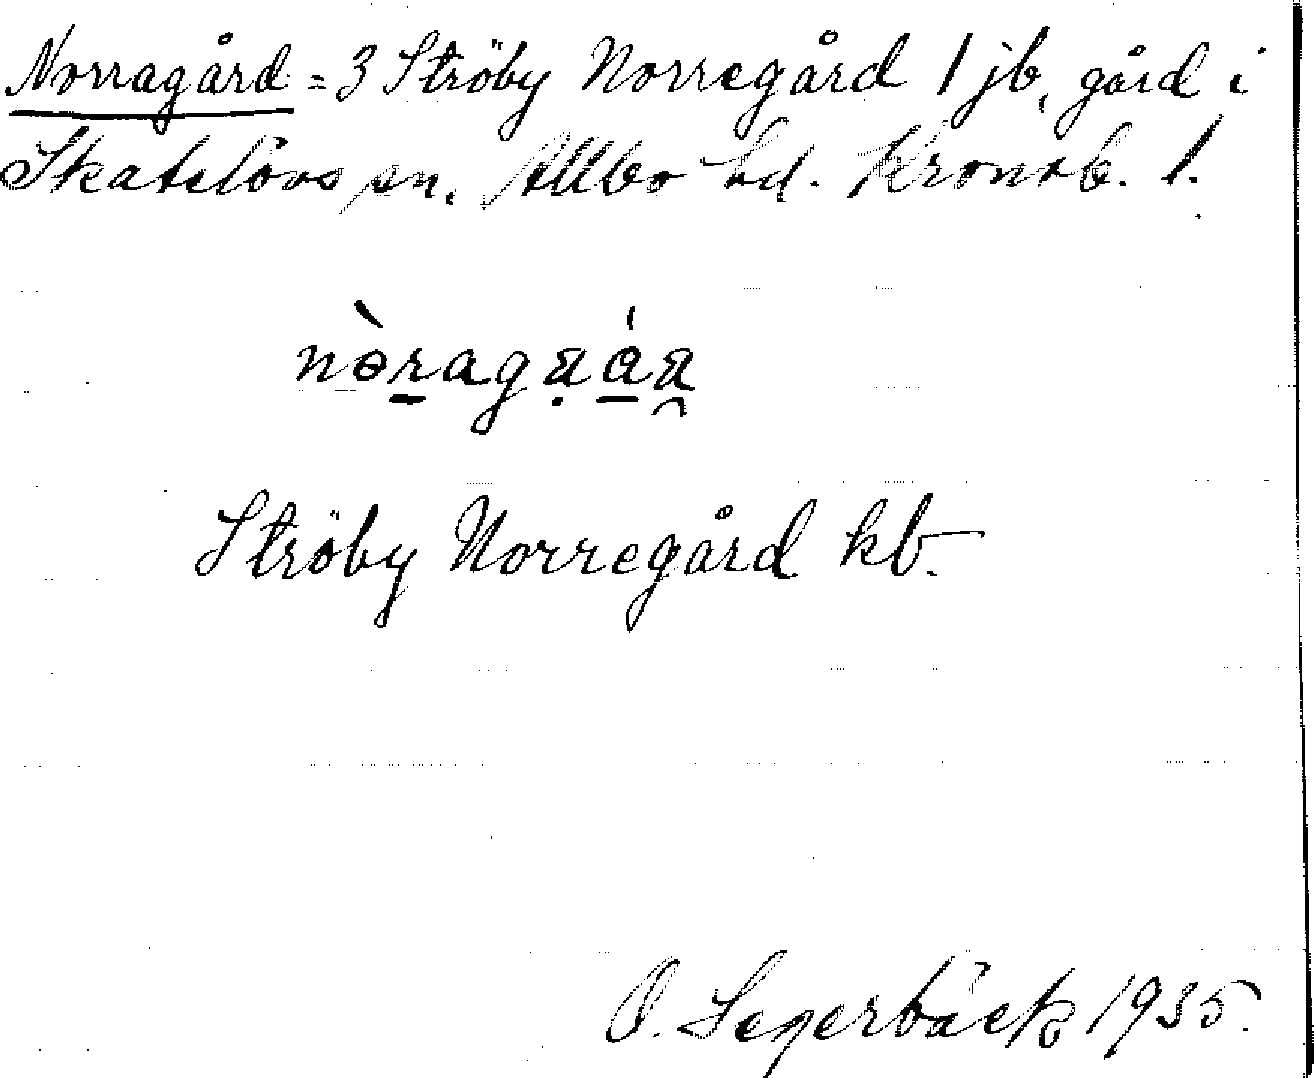 Norragård = 3 Ströby Norregård 1 jb, gård i
Skatelövs sn. Allbo hd. Kronob. l.
Ströby Norregård kb.
O. Segerbäck 1935.